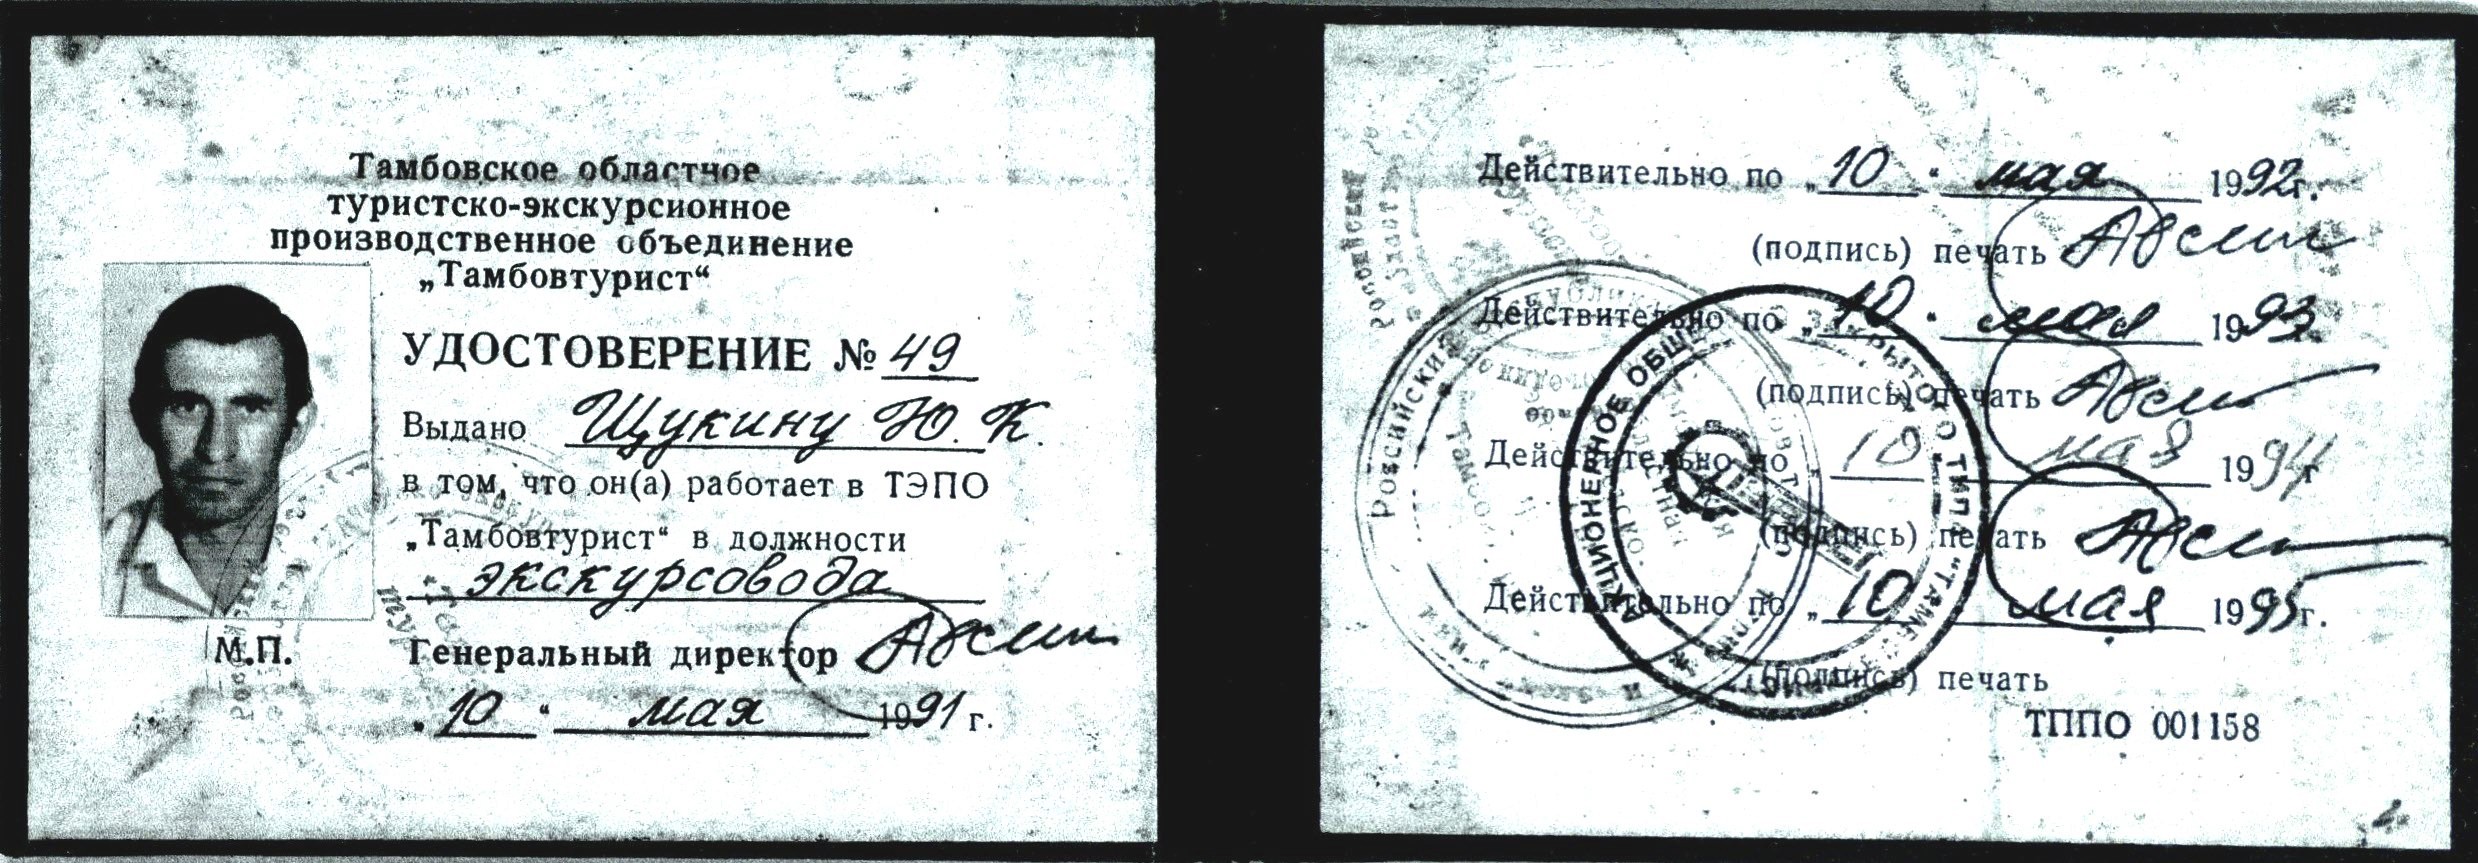 Тамбовское областное
туристско-экскурсионное
производственное объединение
„Тамбовтурист“
УДОСТОВЕРЕНИЕ № 49
Выдано Щукину Ю. К.
в том, что он(а) работает в ТЭПО
„Тамбовтурист“ в должности
экскурсовода
М.П.
Генеральный директор
„10“ мая 1991 г.
Действительно по „10“ мая 1992г.
(подпись) печать
Действительно по „10“ мая 1993г.
(подпись) печать
Действительно по „10“ мая 1994г
(подпись) печать
Действительно по „10“ мая 1995г.
(подпись) печать
ТППО 001158
Российский
АКЦИОНЕРНОЕ ОБЩЕ ЗАКРЫТОГО ТИПА